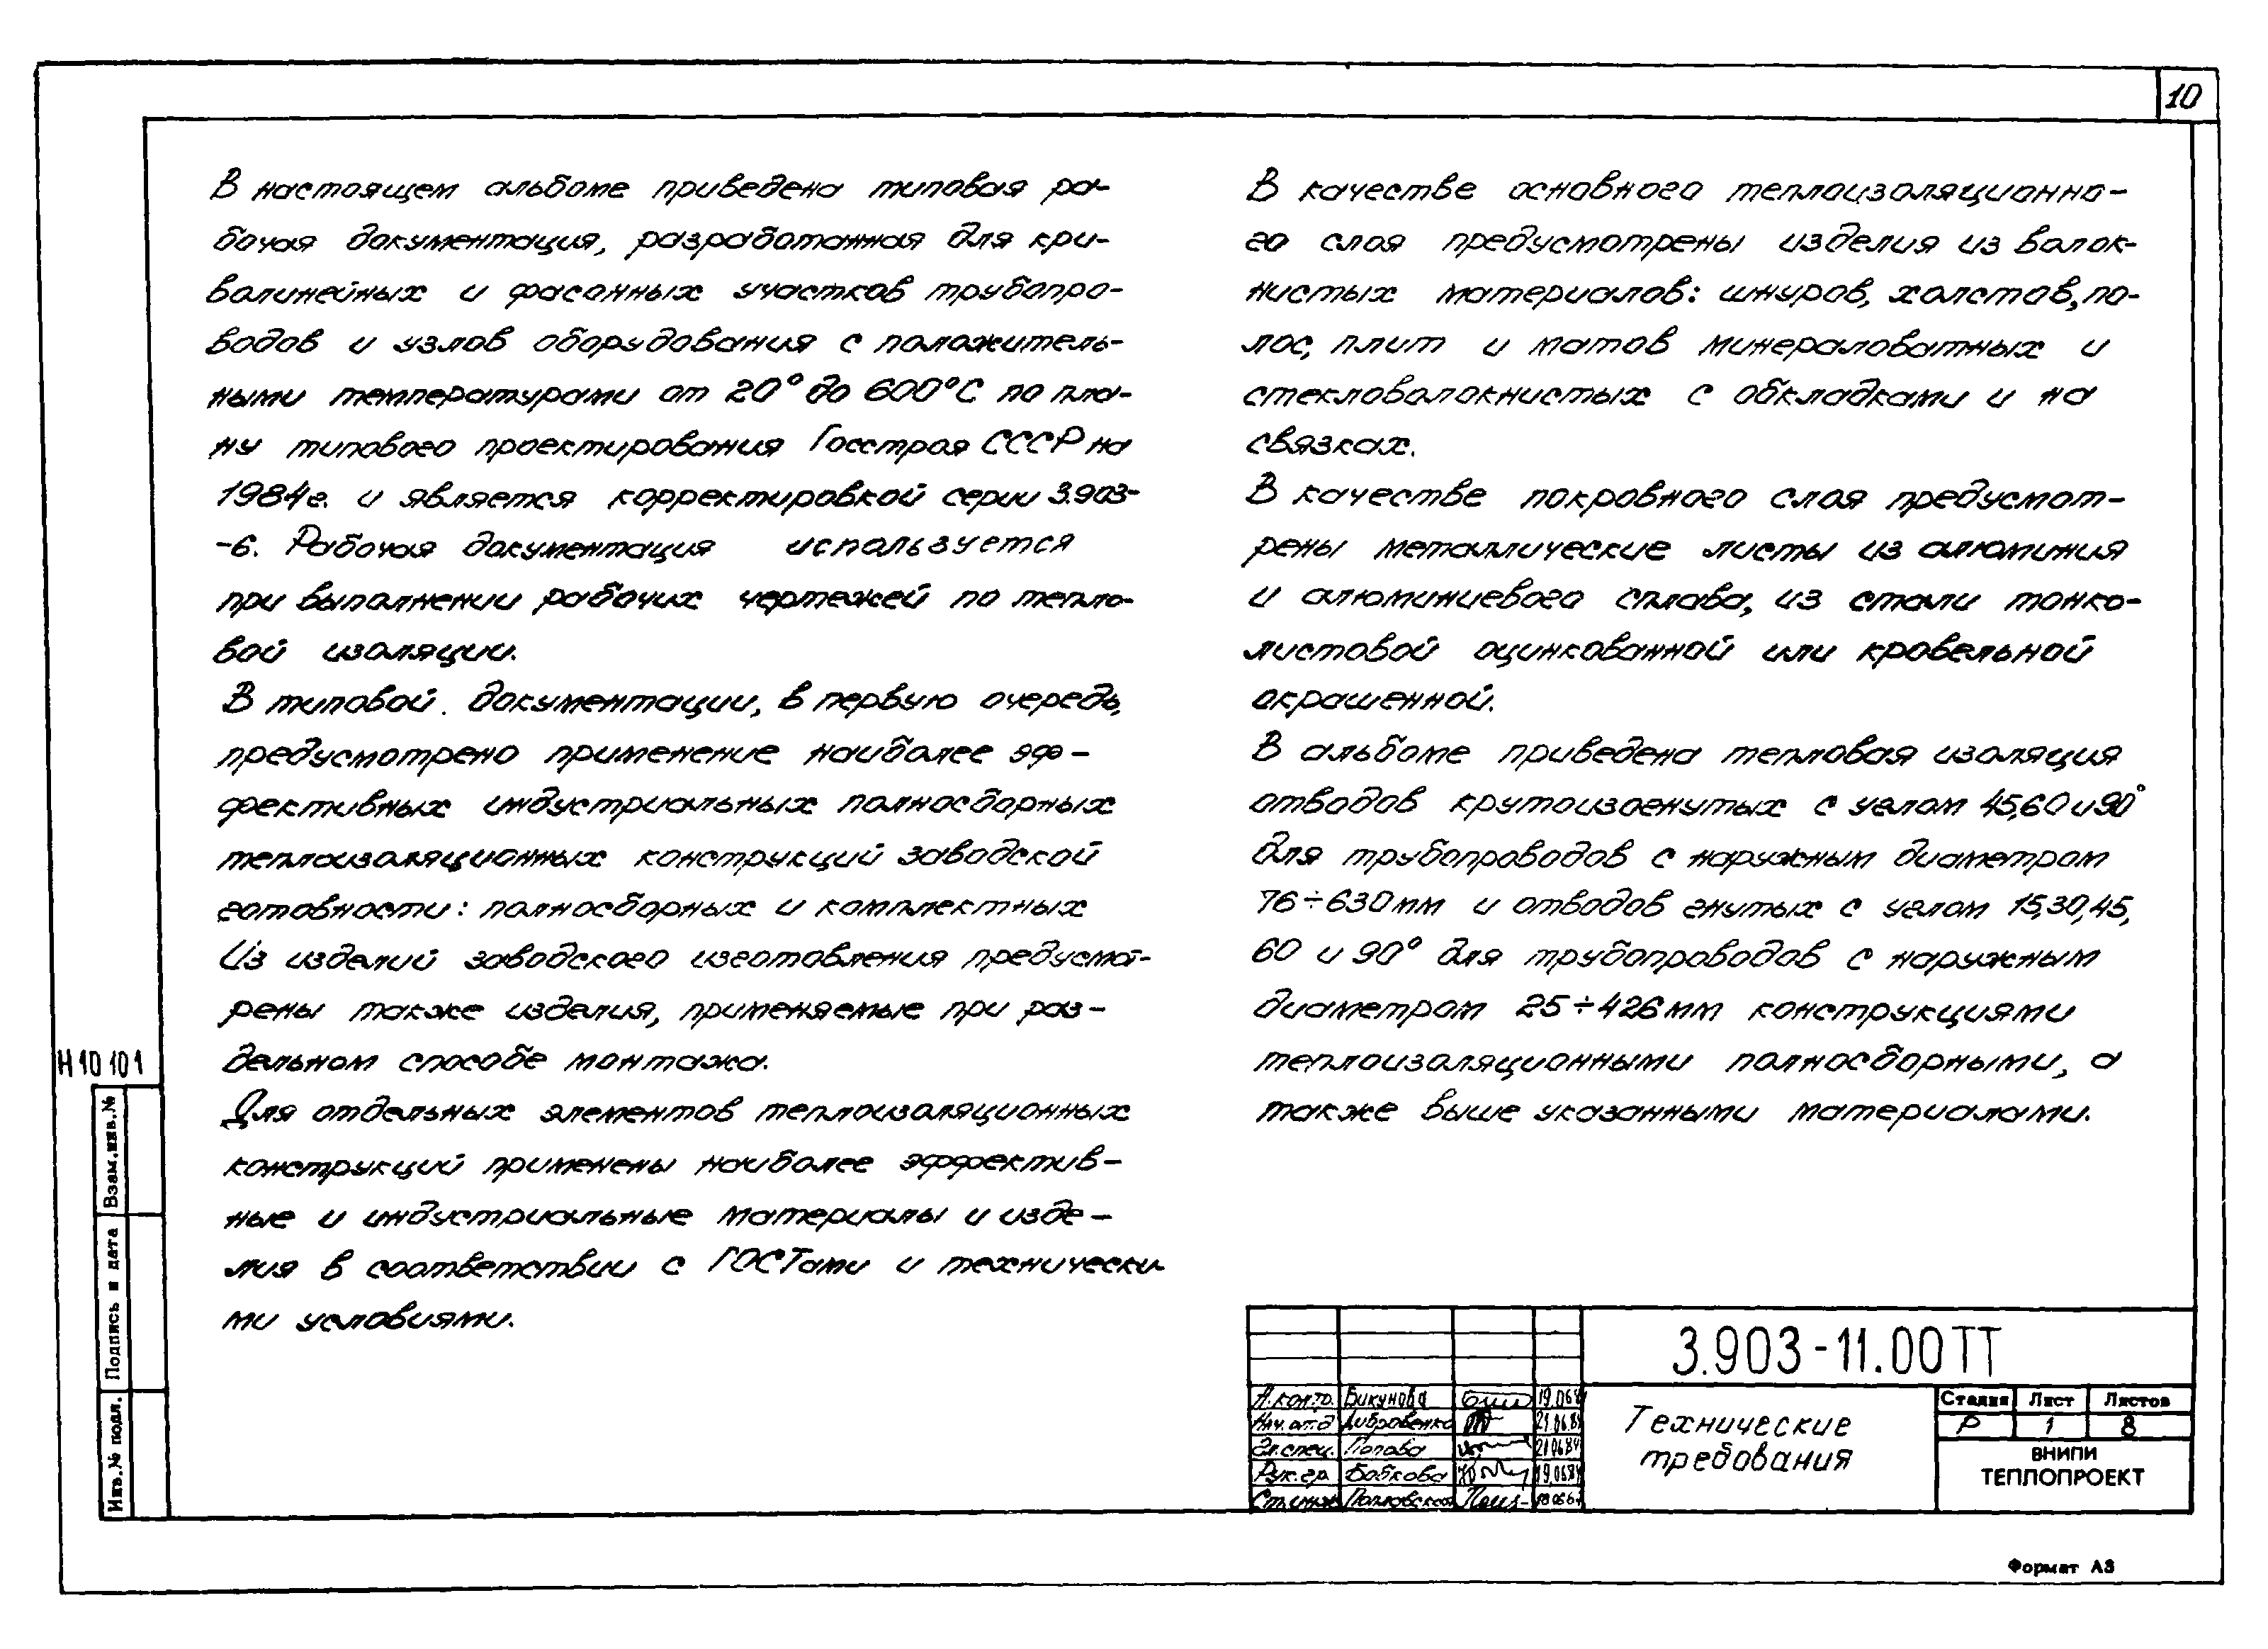 10
В настоящем альбоме приведена типовая ра-
бочая документация, разработанная для кри-
валинейных и фасонных участков трубопро-
водов и узлов оборудования с положитель-
ными температурами от 20° до 600°С по пла-
ну типового проектирования Госстроя СССР на
1984г. и является корректировкой серии 3.903-
-6. Рабочая документация используется
при выполнении рабочих чертежей по тепло-
вой изоляции.
В типовой документации, в первую очередь,
предусмотрено применение наиболее эф-
фективных индустриальных полносборных
теплоизоляционных конструкций заводской
готовности: полносборных и комплектных
Из изделий заводского изготовления предусмот-
рены также изделия, применяемые при раз-
дельном способе монтажа.
Для отдельных элементов теплоизоляционных
конструкций применены наиболее эффектив-
ные и индустриальные материалы и изде-
лия в соответствии с ГОСТами и технически
ми условиями.
В качестве основного теплоизоляционно-
го слоя предусмотрены изделия из волок-
нистых материалов: шнуров, холстов, по-
лос, плит и матов минераловатных и
стекловолокнистых с обкладками и на
связках.
В качестве покровного слоя предусмот-
рены металлические листы из алюминия
и алюминиевого сплава, из стали тонко-
листовой оцинкованной или кровельной
окрашенной.
В альбоме приведена тепловая изоляция
отводов крутоизогнутых с углом 45,60 и 90°
для трубопроводов с наружным диаметром
76÷630мм и отводов гнутых с углом 15,30,45,
60 и 90° для трубопроводов с наружным
диаметром 25÷426мм конструкциями
теплоизоляционными полносборными, а
также выше указанными материалами.
Н10101
Взам.инв.№
Подпись и дата
Инв.№ подл.
3.903-11.00ТТ
Н.контр. Бикунова 19.0684
Нач.отд Дибровенко 21.06.84
Гл.спец. Попова 210684
Рук.гр. Бобкова 19.0684
Ст.инж
Технические
требования
Стадия Лист Листов
Р 1 8
ВНИПИ
ТЕПЛОПРОЕКТ
Формат А3